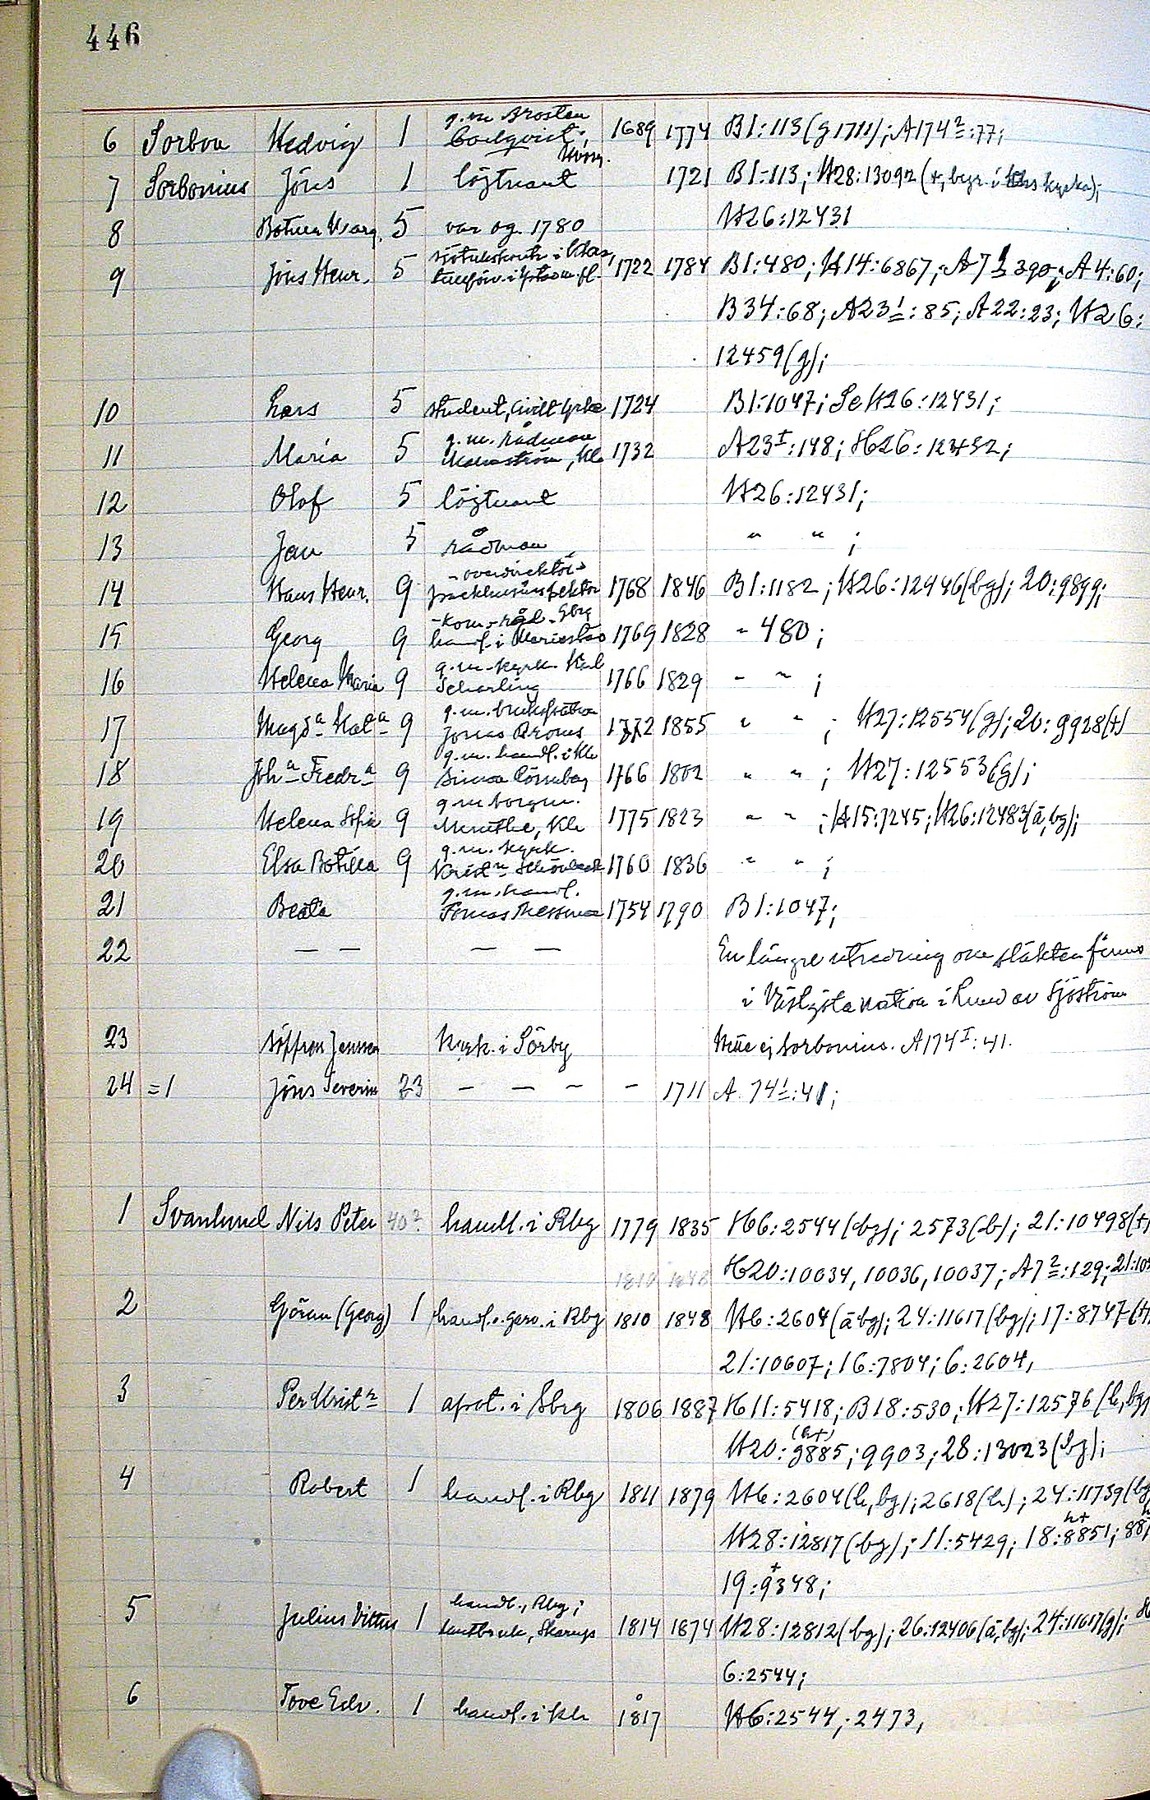 446
6 Sorbon Hedvig 1 g.m. Prosten 1689 1774 B1:113 (g 1711); A174²:77;
7 Sorbonius Jöns 1 löjtnant 1721 B1:113; H28:13092 (+, begr. i kyrka);
8 Botilla Marg. 5 var og. 1780 H26:12431
9 Jöns Henr. 5 1722 1784 B1:480; H14:6867; A7¹ 390; A4:60;
B34:68; A23¹:85; A22:23; H26:
12459 (g);
10 Lars 5 student, 1724 B1:1047; Se H26:12431;
11 Maria 5 g.m. rådman 1732 A23¹:148; H26:12432;
12 Olof 5 löjtnant H26:12431;
13 Jan 5 rådman " " ;
14 Hans Henr. 9 överdirektör 1768 1846 B1:1182; H26:12946 (bg); 20:9899;
15 Georg 9 handl. i Mariestad 1769 1828 " 480;
16 Helena Maria 9 g.m. kyrk. Scharling 1766 1829 " " ;
17 Magdª Katª 9 g.m. Jonas Broms 1772 1855 " " ; H27:12554 (g); 20:9928 (+)
18 Johª Fredrª 9 g.m. handl. i Kh Simon 1766 1802 " " ; H27:12553 (g);
19 Helena Sofia 9 g.m. borgm. Munthe, Kh 1775 1823 " " ; H15:7245; H26:12483 (ä, bg);
20 Elsa Botilla 9 g.m. kyrk. 1760 1836 " " ;
21 Beata g.m. handl. Tomas 1754 1790 B1:1047;
22 — — — — En längre utredning om släkten finns
i Västgöta nation i Lund av Sjöström
23 Söffren Jensen kyrk. i Sörby Hette ej Sorbonius. A174¹:41.
24 = 1 Jöns Severin 23 — — — — 1711 A 74¹:41;
1 Svanlund Nils Peter 40? handl. i Rbg 1779 1835 H6:2544 (bg); 2573 (b); 21:10498 (+)
H20:10034, 10036, 10037; A7²:129;
2 Göran (Georg) 1 handl. o. garv. i Rbg 1810 1848 H6:2604 (ä bg); 24:11617 (bg); 17:8747
21:10607; 16:7804; 6:2604,
3 Per Kristⁿ 1 apot. i Sbrg 1806 1887 H11:5418; B18:530; H27:12576 (h, bg,
H20:9885; 9903; 28:13023 (bg);
4 Robert 1 handl. i Rbg 1811 1879 H6:2604 (h, bg); 2618 (h); 24:11739 (bg
H28:12817 (bg); 11:5429; 18:8851;
19:9348;
5 Julius Viktus 1 handl., Rbg; lantbruk., Skarup 1814 1674 H28:12812 (bg); 26:12406 (ä, bg); 24:11617 (g);
6:2544;
6 Tove Edv. 1 handl. i Kh 1817 H6:2544; 2473,